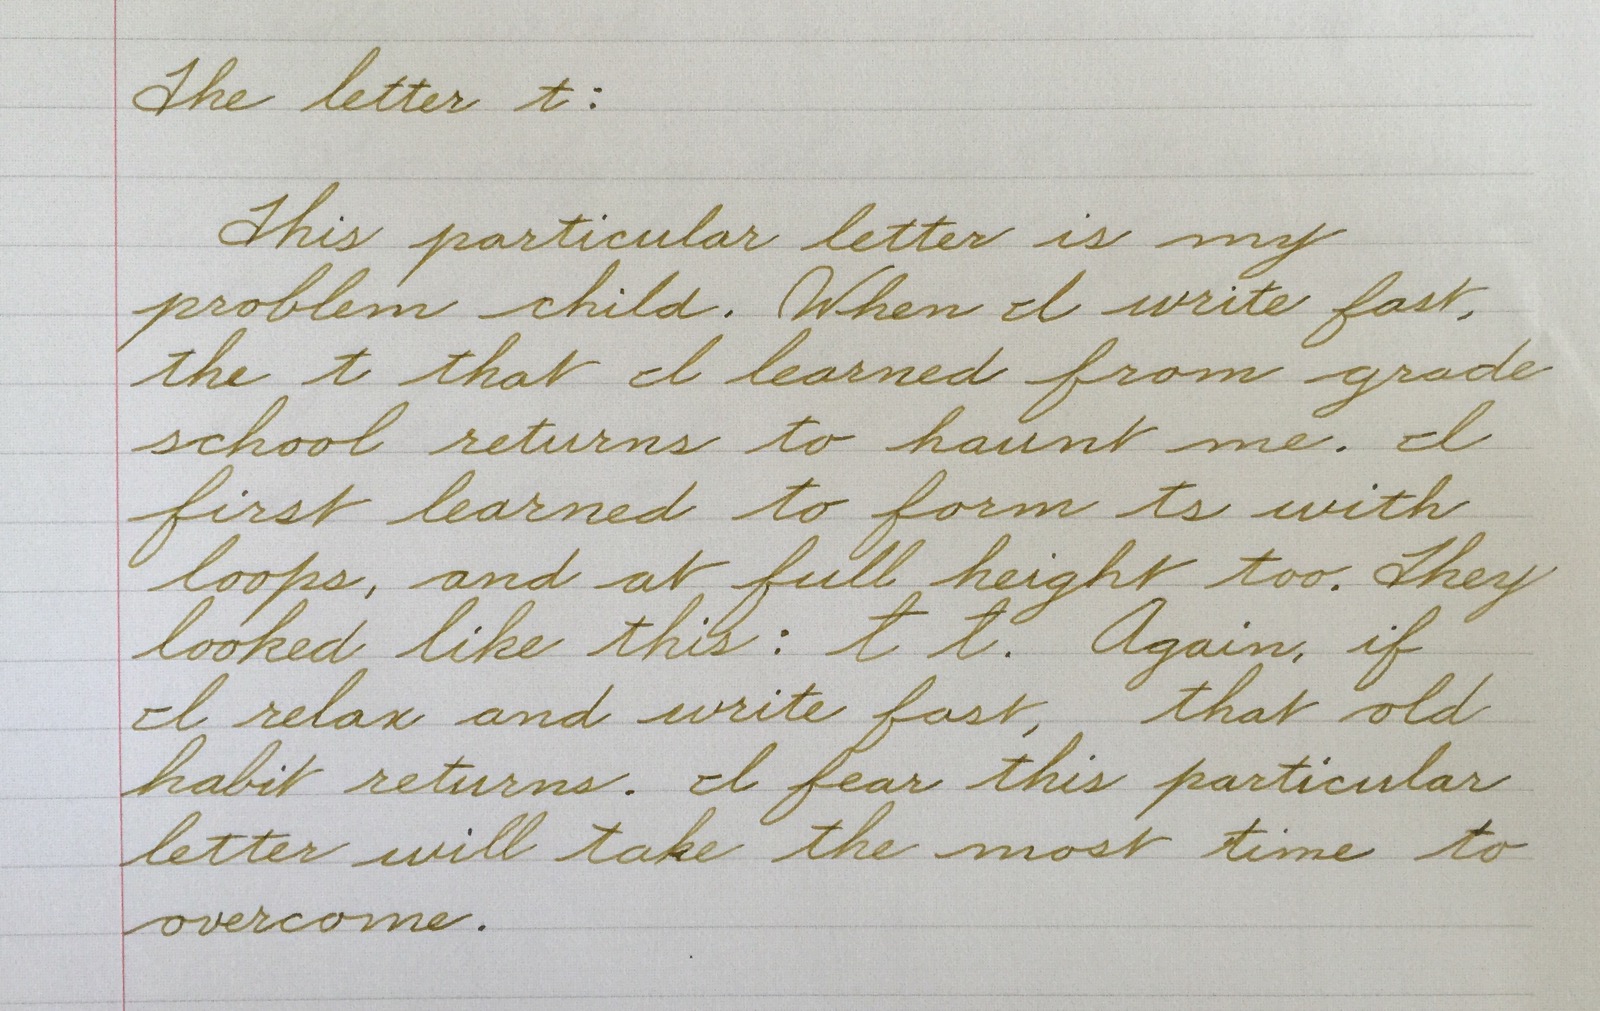 The letter t:
This particular letter is my
problem child. When I write fast,
the t that I learned from grade
school returns to haunt me. I
first learned to form ts with
loops, and at full height too. They
looked like this: t t. Again, if
I relax and write fast, that old
habit returns. I fear this particular
letter will take the most time to
overcome.